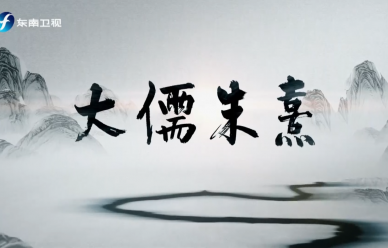 东南卫视
大儒朱熹